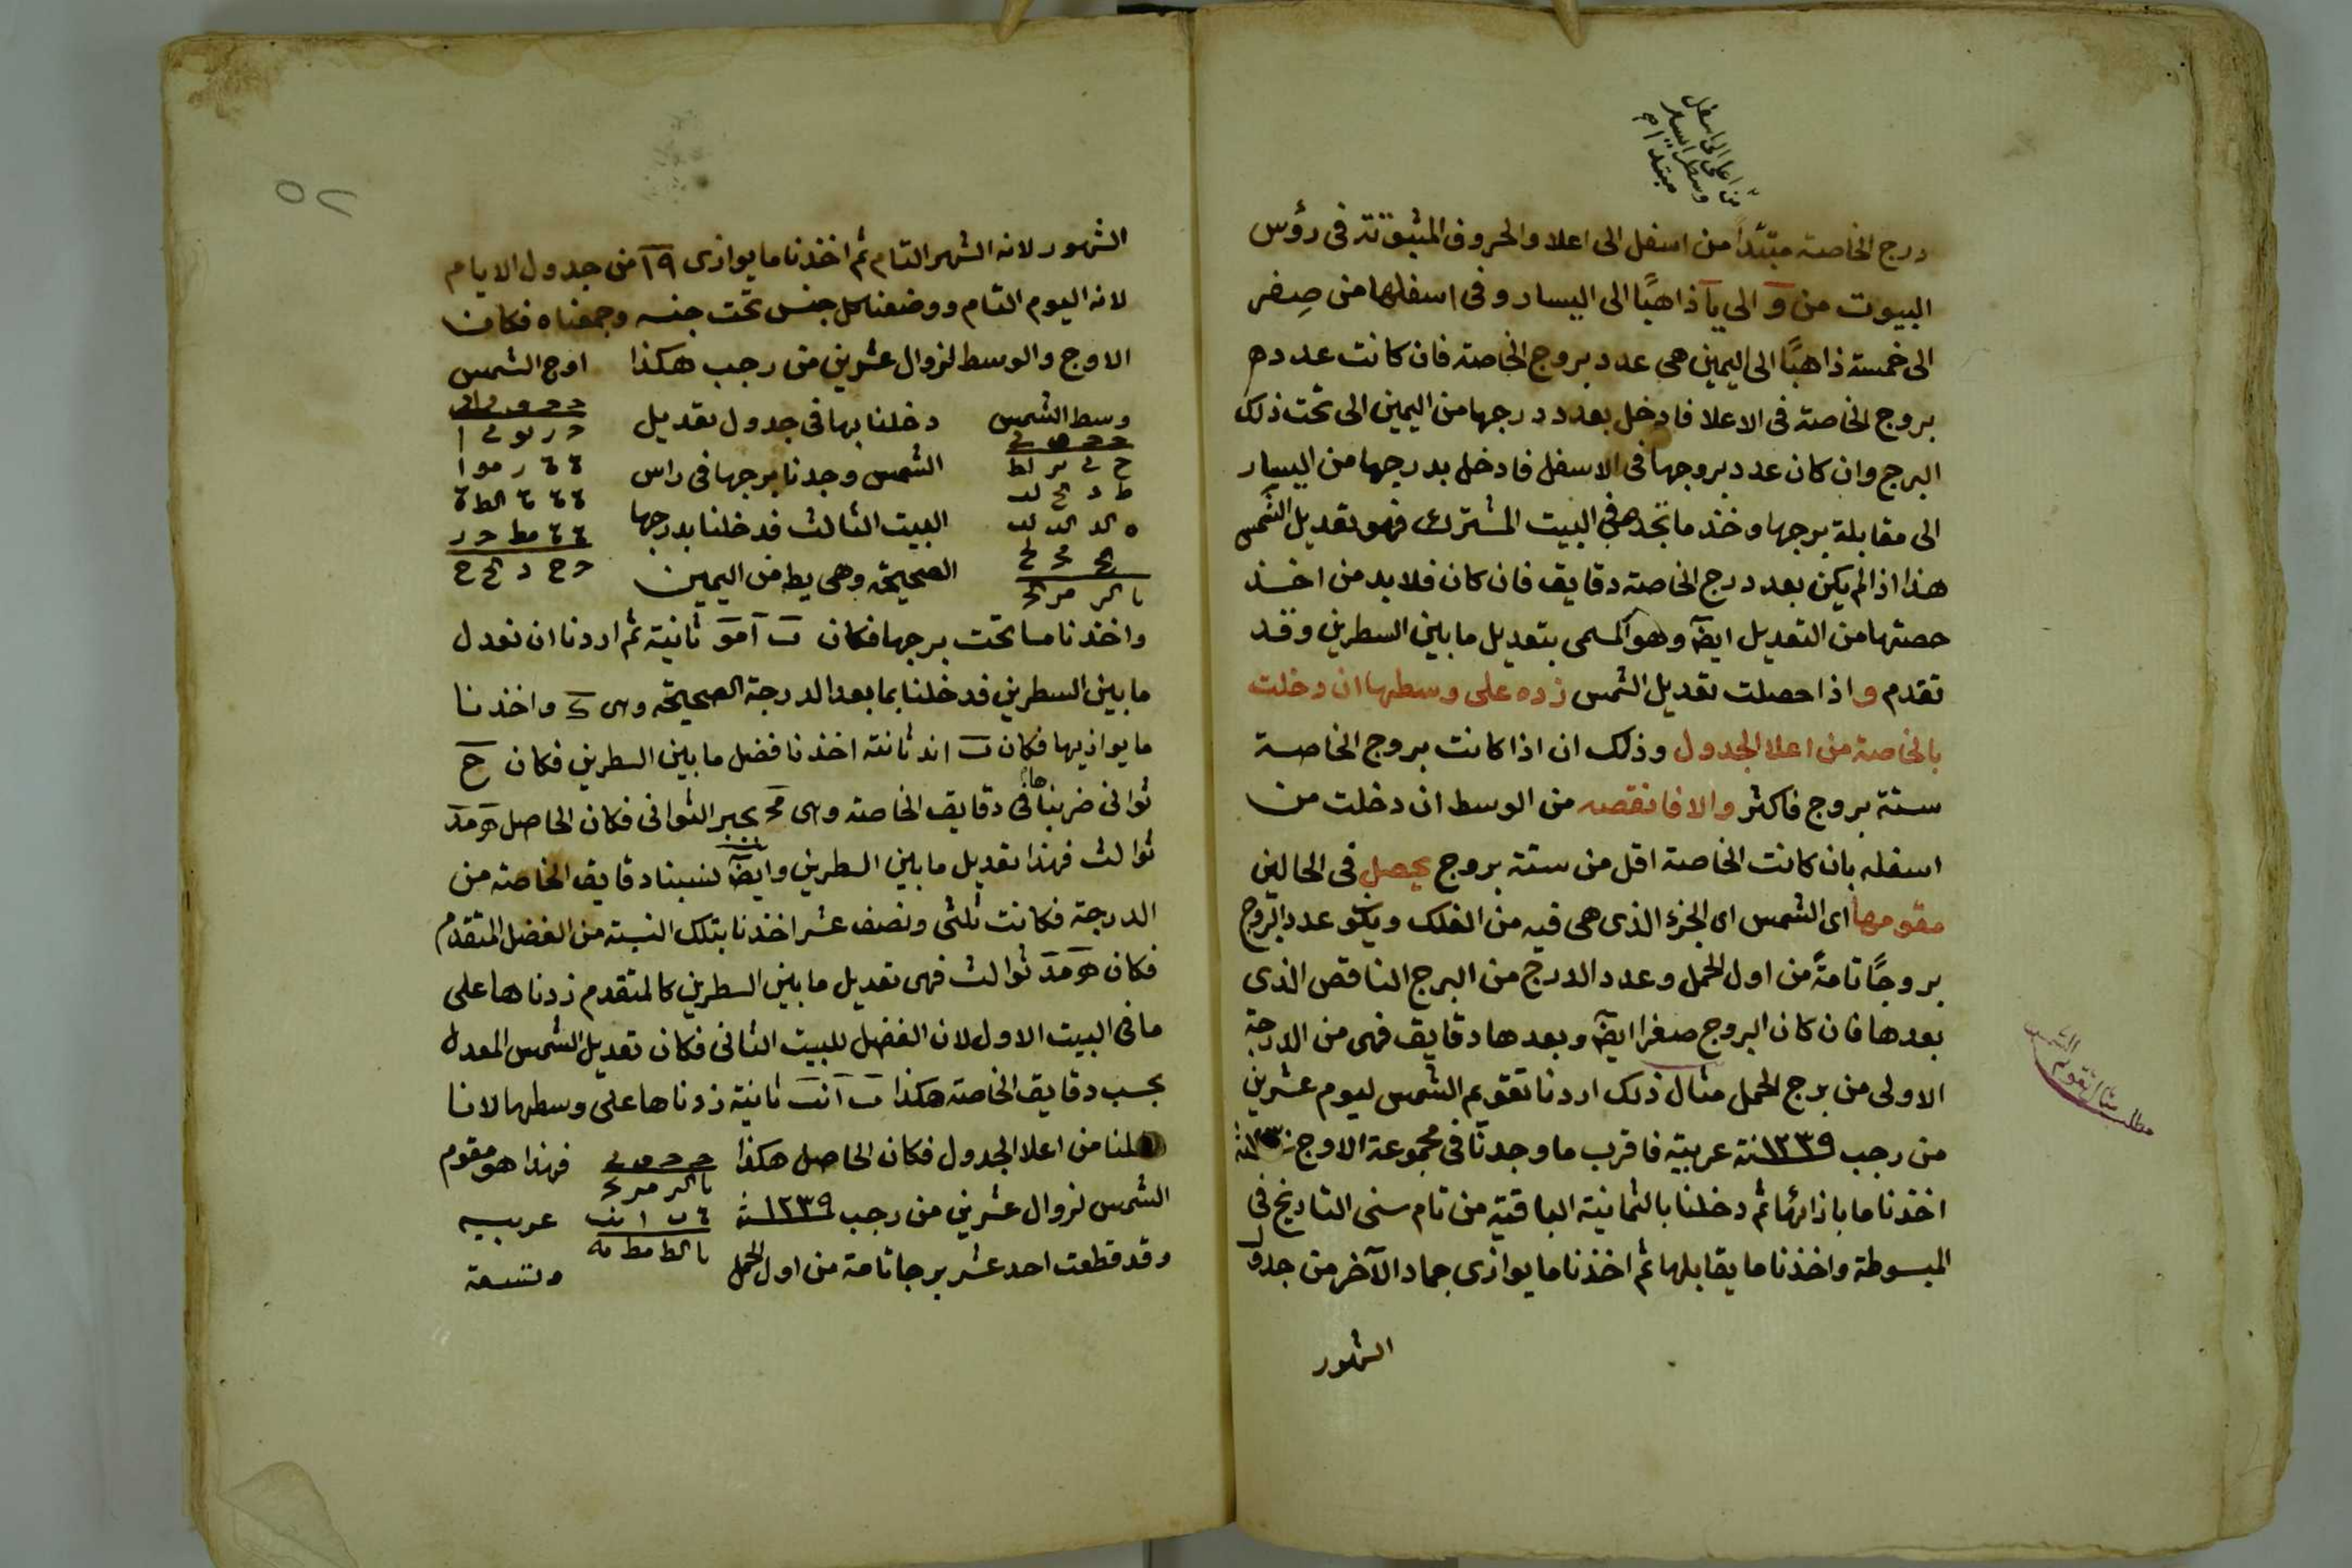 من اعلى الى اسفل
وسطر اليسار
مبتدا م
درج الخاصة مبتدأ من اسفل الى اعلا والحروف المثبوتة فى رؤس
البيوت من و الى يا ذاهبًا الى اليسار وفى اسفلها من صِفر
الى خمسة ذاهبًا الى اليمين هى عدد بروج الخاصة فان كانت عدد
بروج الخاصة فى الاعلا فادخل بعدد درجها من اليمين الى تحت ذلك
البرج وان كان عدد بروجها فى الاسفل فادخل بدرجها من اليسار
الى مقابلة برجها وخذ ما تجده فى البيت المشترك فهو تعديل الشمس
هذا اذا لم يكن بعد درج الخاصة دقايق فان كان فلا بد من اخذ
حصتها من التعديل ايضا وهو المسمى بتعديل ما بين السطرين وقد
تقدم واذا حصلت تعديل الشمس زده على وسطها ان دخلت
بالخاصة من اعلا الجدول وذلك ان اذا كانت بروج الخاصة
ستة بروج فاكثر والا فانقصه من الوسط ان دخلت من
اسفله بان كانت الخاصة اقل من ستة بروج يحصل فى الحالين
مقومها اى الشمس اى الجزء الذى هى فيه من الفلك ويكو عدد البروج
بروجًا تامةً من اول الحمل وعدد الدرج من البرج الناقص الذى
بعدها فان كان البروج صفرا ايضا وبعدها دقايق فهى من الدرجة
الاولى من برج الحمل مثال ذلك اردنا تقويم الشمس ليوم عشرين
مطلب مثال تقويم الشمس
من رجب ١٢٣٩نة عربية فاقرب ما وجدنا فى مجموعة الاوج
اخذنا ما بازائها ثم دخلنا بالثمانية الباقية من تام سنى التاريخ فى
المبسوطة واخذنا ما يقابلها ثم اخذنا ما يوازى جماد الآخر من جدول
الشهور
٥٢
الشهور لانه الشهر التام ثم اخذنا ما يوازى ١٩ من جدول الايام
لانه اليوم التام ووضعنا كل جنس تحت جنسه وجمعناه فكان
الاوج والوسط لزوال عشرين من رجب هكذا اوج الشمس
وسط الشمس دخلنا بها فى جدول تعديل
الشمس وجدنا برجها فى راس
البيت الثالث فدخلنا بدرجها
الصحيحة وهى يط من اليمين
واخذنا ما تحت برجها فكان ٮ آ مو ثانية ثم اردنا ان نعدل
ما بين السطرين فدخلنا بما بعد الدرجة الصحيحة وهى ك واخذنا
ما يوازيها فكان ٮ اند ثانية اخذنا فضل ما بين السطرين فكان ح
ثوانى ضربناها فى دقايق الخاصة وهى مح بجبر الثوانى فكان الحاصل ه مد
ثوالث فهذا تعديل ما بين السطرين وايضا نسبنا دقايق الخاصة من
الدرجة فكانت ثلثى ونصف عشر اخذنا بتلك النسبة من الفضل المتقدم
فكان ه مد ثوالث فهى تعديل ما بين السطرين كالمتقدم زدناها على
ما فى البيت الاول لان الفضل للبيت الثانى فكان تعديل الشمس المعدل
بحسب دقايق الخاصة هكذا ٮ آ نٮ ثانية زدناها على وسطها لانا
دخلنا من اعلا الجدول فكان الحاصل هكذا فهذا هو مقوم
الشمس لزوال عشرين من رجب ١٢٣٩نة عربيه
وقد قطعت احد عشر برجا تامة من اول الحمل وتسعة